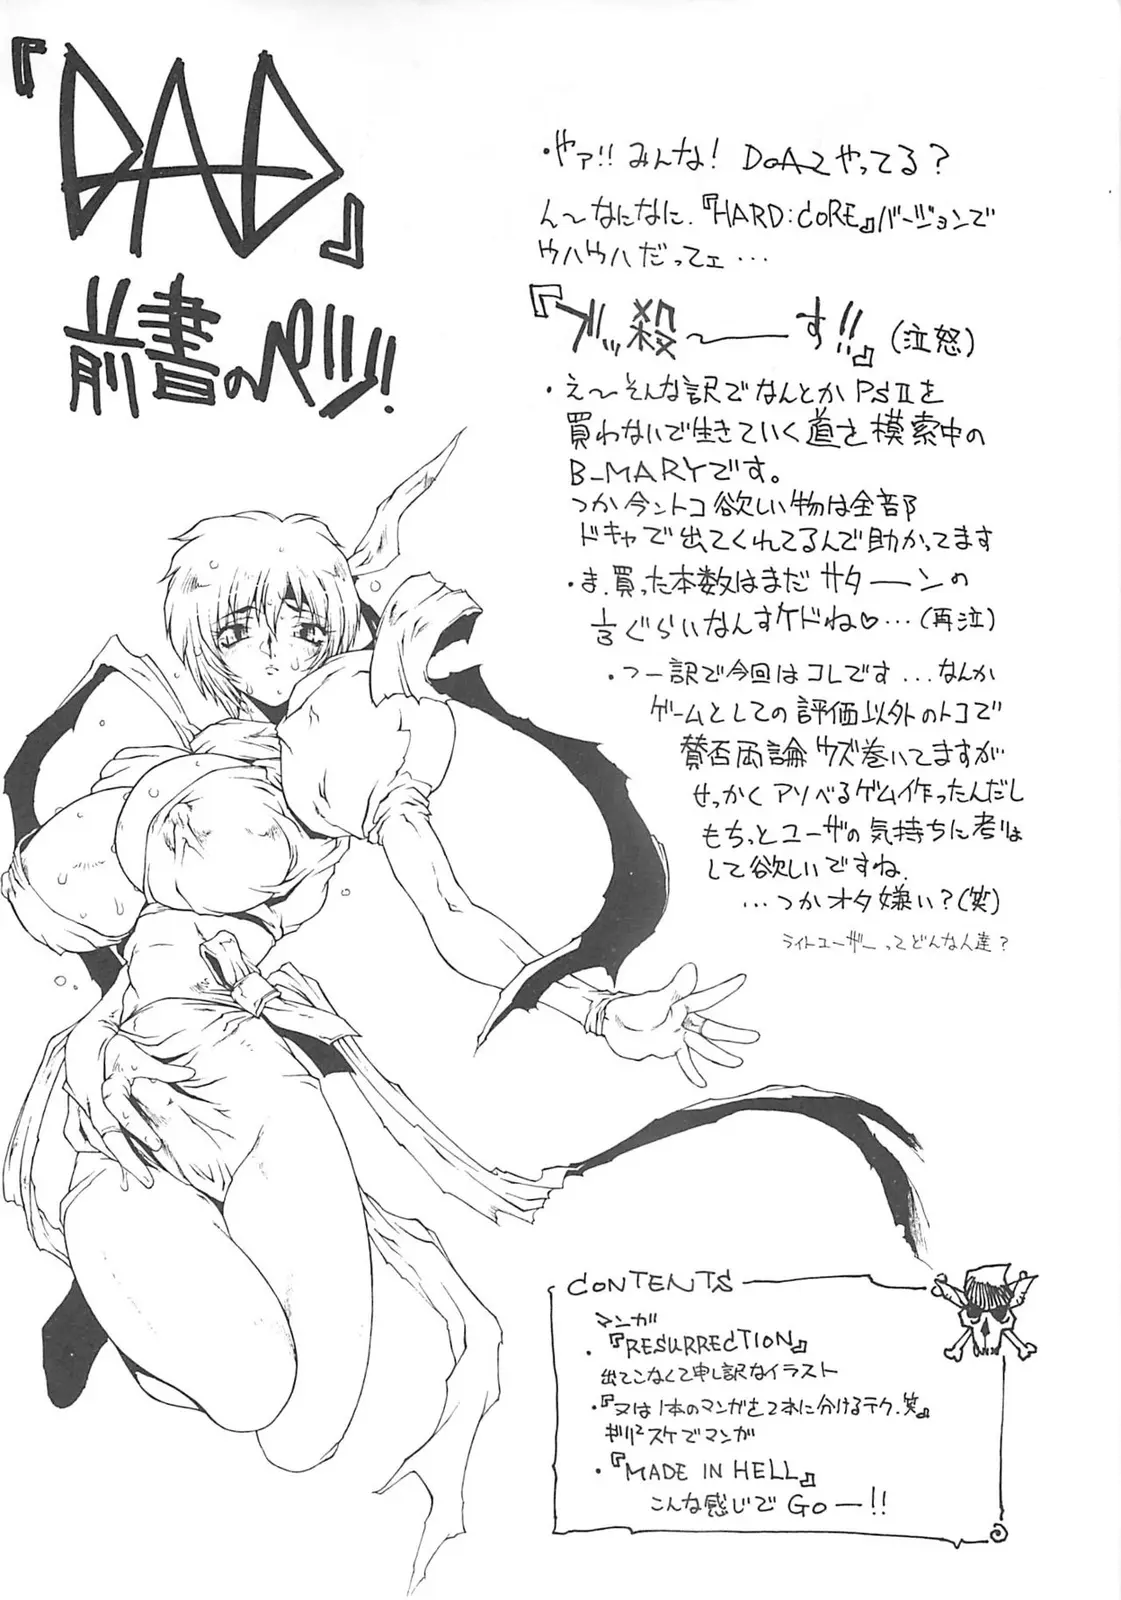 『DAD』
前書のペヅ!
・やァ!!みんな! DoA2やってる?
ん〜なになに、『HARD:CORE』バージョンで
ウハウハだってェ…
『ブッ殺〜――す!!』(泣怒)
・え〜そんな訳でなんとかPSⅡを
買わないで生きていく道を模索中の
B-MARYです。
つか今ントコ欲しい物は全部
ドキャで出てくれてるんで助かってます
・ま、買った本数はまだサターンの
1/3ぐらいなんすケドね♡…(再泣)
・つー訳で今回はコレです…なんか
ゲームとしての評価以外のトコで
賛否両論ウズ巻いてますが
せっかくアソべるゲム作ったんだし
もちっとユーザの気持ちに考は
して欲しいですね、
…つかオタ嫌い?(笑)
ライトユーザーってどんな人達?
CONTENTS
マンガ
・『RESURRECTION』
出てこなくて申し訳なイラスト
・『又は1本のマンガを2本に分けるテク、笑』
ギリ2スケでマンガ
・『MADE IN HELL』
こんな感じで GOー!!